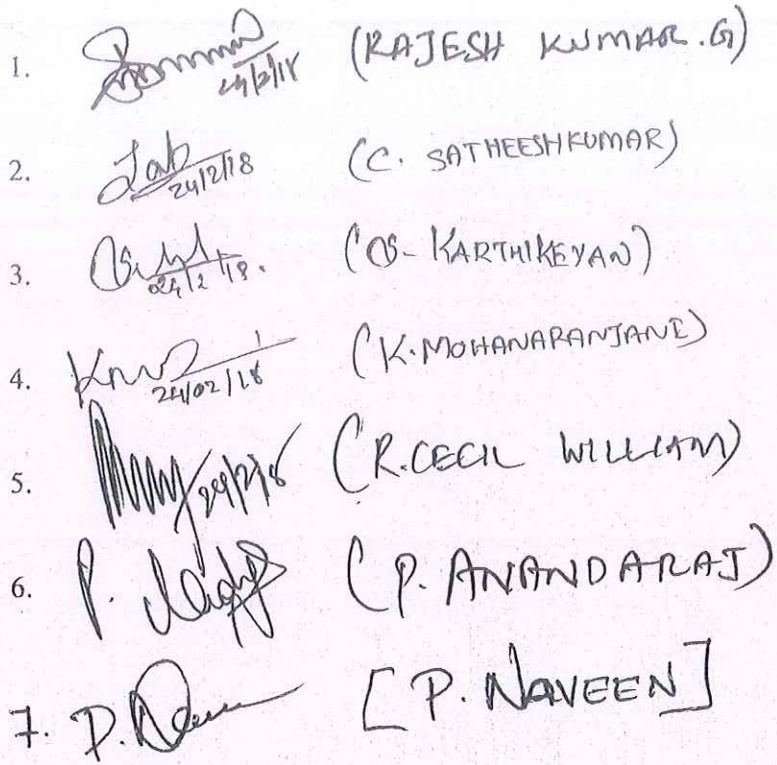 1. 24/2/18 (RAJESH KUMAR.G)
2. 24/2/18 (C. SATHEESHKUMAR)
3. 24/2/18. (KARTHIKEYAN)
4. 24/02/18 (K.MOHANARANJANI)
5. 24/2/18 (R.CECIL WILLIAM)
6. P. (P. ANANDARAJ)
7. P. [P. NAVEEN]